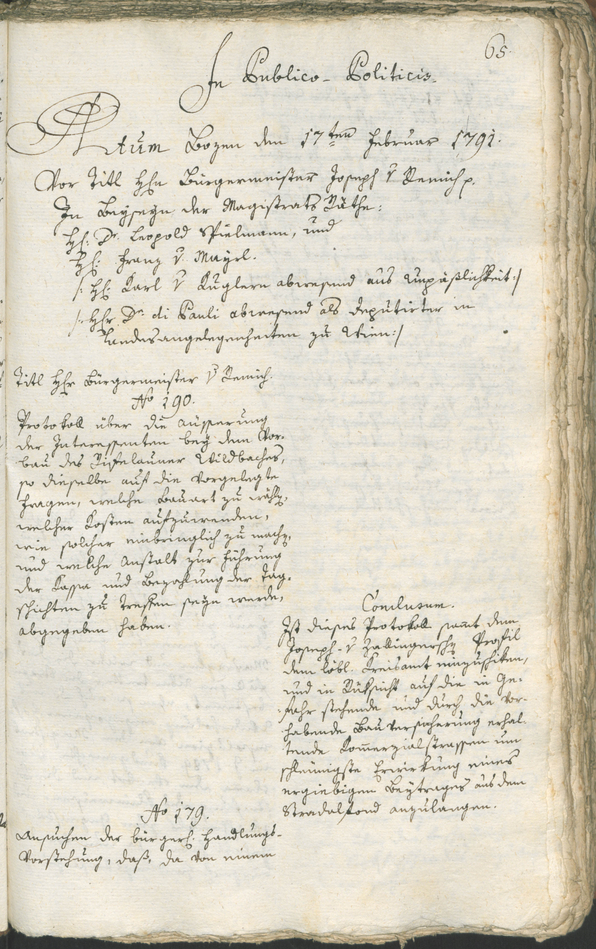 65.
In Publico-Politicis.
Actum Bozen den 17ten Februar 1791.
Vor Titl Hhn Bürgermeister Joseph v Remich p.
In Beyseyn der Magistrats Räthe:
Hh: Dr. Leopold Spielmann, und
Hh: Franz v. Mayrl.
/: Hh: Karl v Kuglern abwesend aus Unpäßlichkeit :/
/: Hhr Dr di Pauli abwesend als Deputirter in
Landesangelegenheiten zu Wien :/
Titl Hhr Bürgermeister v Remich.
No 190.
Protokoll über die Äusserung
der Interessenten bey dem Vor-
bau des Rivelauner Wildbaches,
so dieselbe auf die vorgelegte
Fragen, welche Bauart zu wähln,
welcher Kosten aufzuwenden,
wie solcher einbringlich zu machn,
und welche Anstalt zur Führung
der Kassa und Bezahlung der Tag-
schichten zu treffen seyn werde,
abgegeben haben.
Conclusum.
Ist dieses Protokoll samt dem
Joseph v Zallingerschn Profil
dem löbl. Kreisamt einzuschiken,
und in Rüksicht auf die in Ge-
fahr stehende und durch die vor-
habende Bauversicherung erhal-
tende Kommerzialstrassen um
schleunigste Erwirkung eines
ergiebigen Beytrages aus dem
Stradalfond anzulangen.
No 179.
Ansuchen der bürgerl. Handlungs-
Vorstehung, daß, da von einem